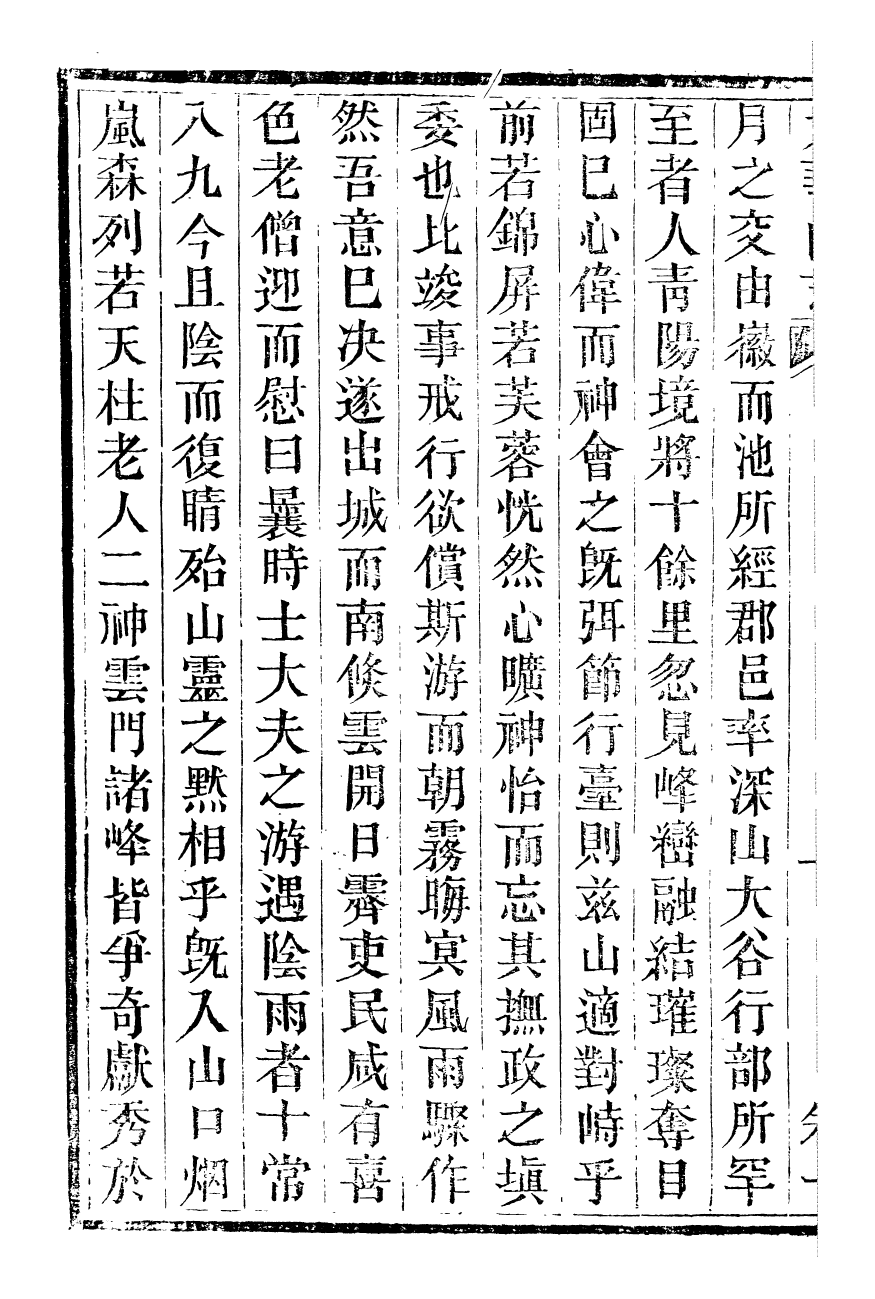 月之交由徽而池所經郡邑率深山大谷行部所罕
至者人靑陽境將十餘里忽見峰巒融結璀璨奪目
固已心偉而神會之旣弭節行臺則兹山適對峙乎
前若錦屏若芙蓉恍然心曠神怡而忘其撫政之塡
委也比竣事戒行欲償斯游而朝霧晦㝠風雨驟作
然吾意已决遂出城而南倏雲開日霽吏民咸有喜
色老僧迎而慰曰曩時士大夫之游遇陰雨者十常
八九今且陰而復晴殆山靈之黙相乎旣入山口烟
嵐森列若天柱老人二神雲門諸峰皆爭奇獻秀於